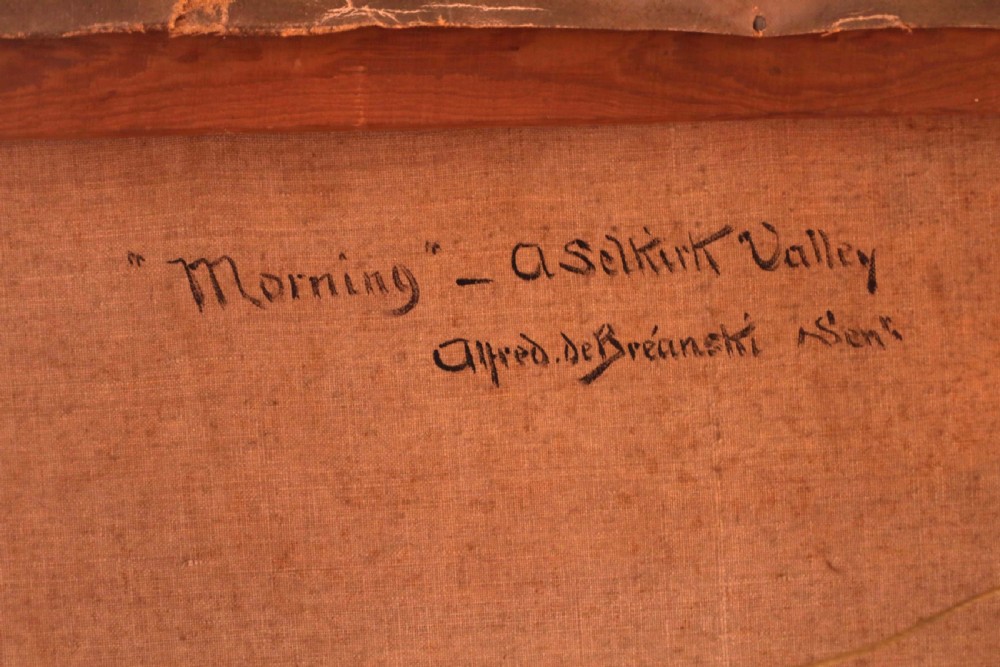 "Morning" – A Selkirk Valley
Alfred. de Bréanski Senr